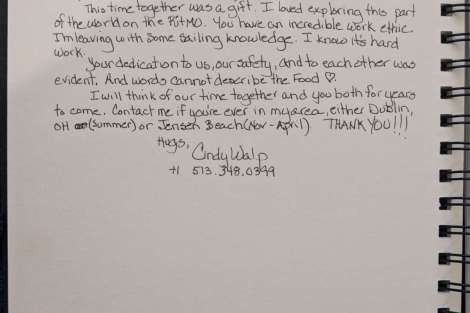 This time together was a gift. I loved exploring this part
of the world on the RITMO. You have an incredible work ethic.
I'm leaving with some sailing knowledge. I know its hard
work.
Your dedication to us, our safety, and to each other was
evident. And words cannot describe the Food ♡.
I will think of our time together and you both for years
to come. Contact me if you're ever in my area, either Dublin,
OH (Summer) or Jensen Beach (Nov - April) THANK YOU!!!
Hugs,
Cindy Walp
+1 513.348.0399